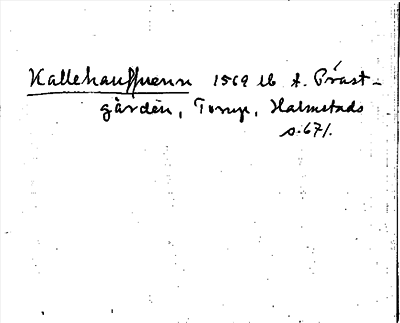 Kallehauffuenn 1569 lb t. Präst-
gården, Torup, Halmstads
s. 671.